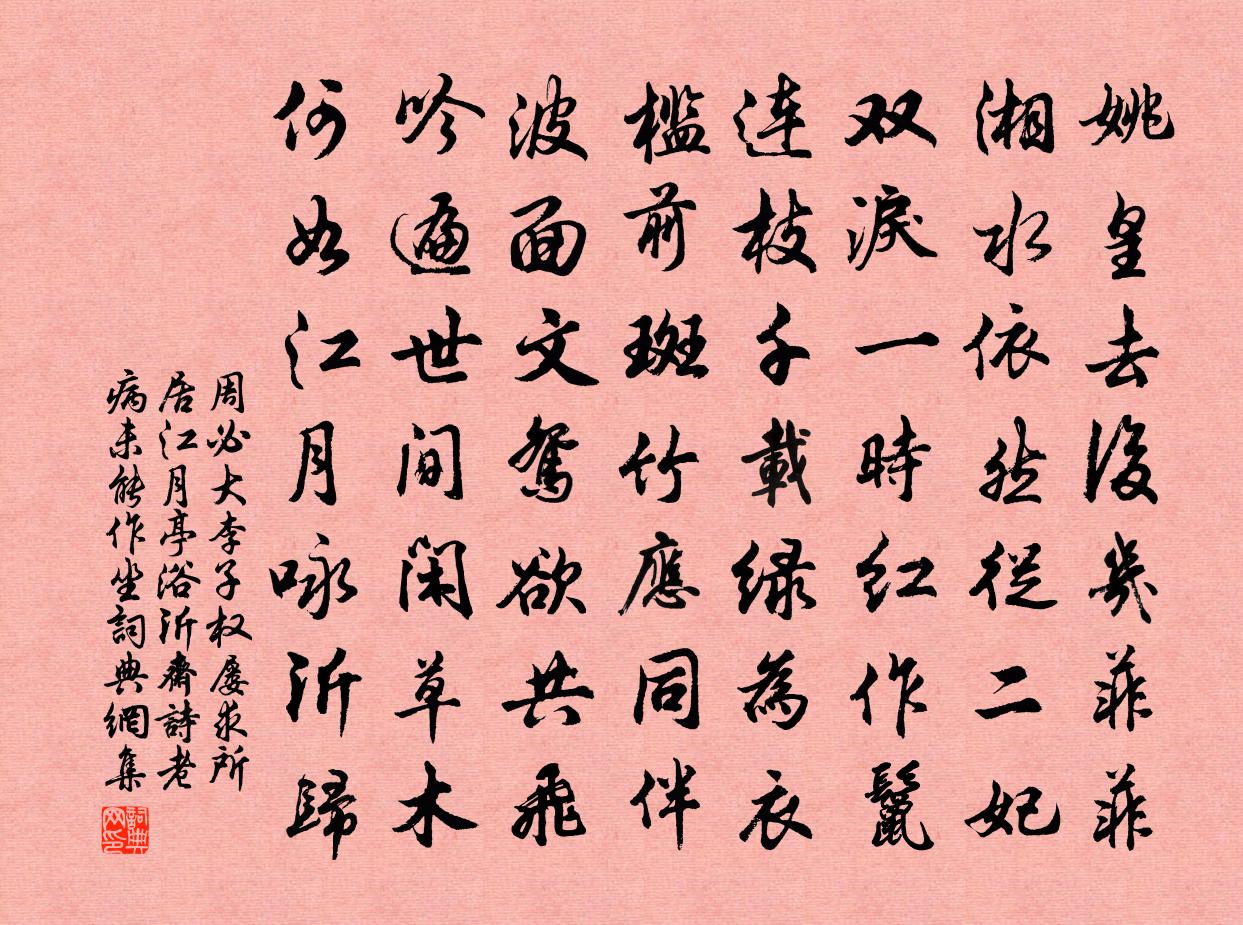 姚皇去後幾菲菲
湘水依然從二妃
双淚一時红作鬣
連枝千載绿為衣
檻前斑竹應同伴
波面文鴛欲共飛
吟遍世間閑草木
何如江月咏沂歸
周必大李子权屡求所
居江月亭浴沂齋詩老
病未能作坐詞典網集
詞典网印